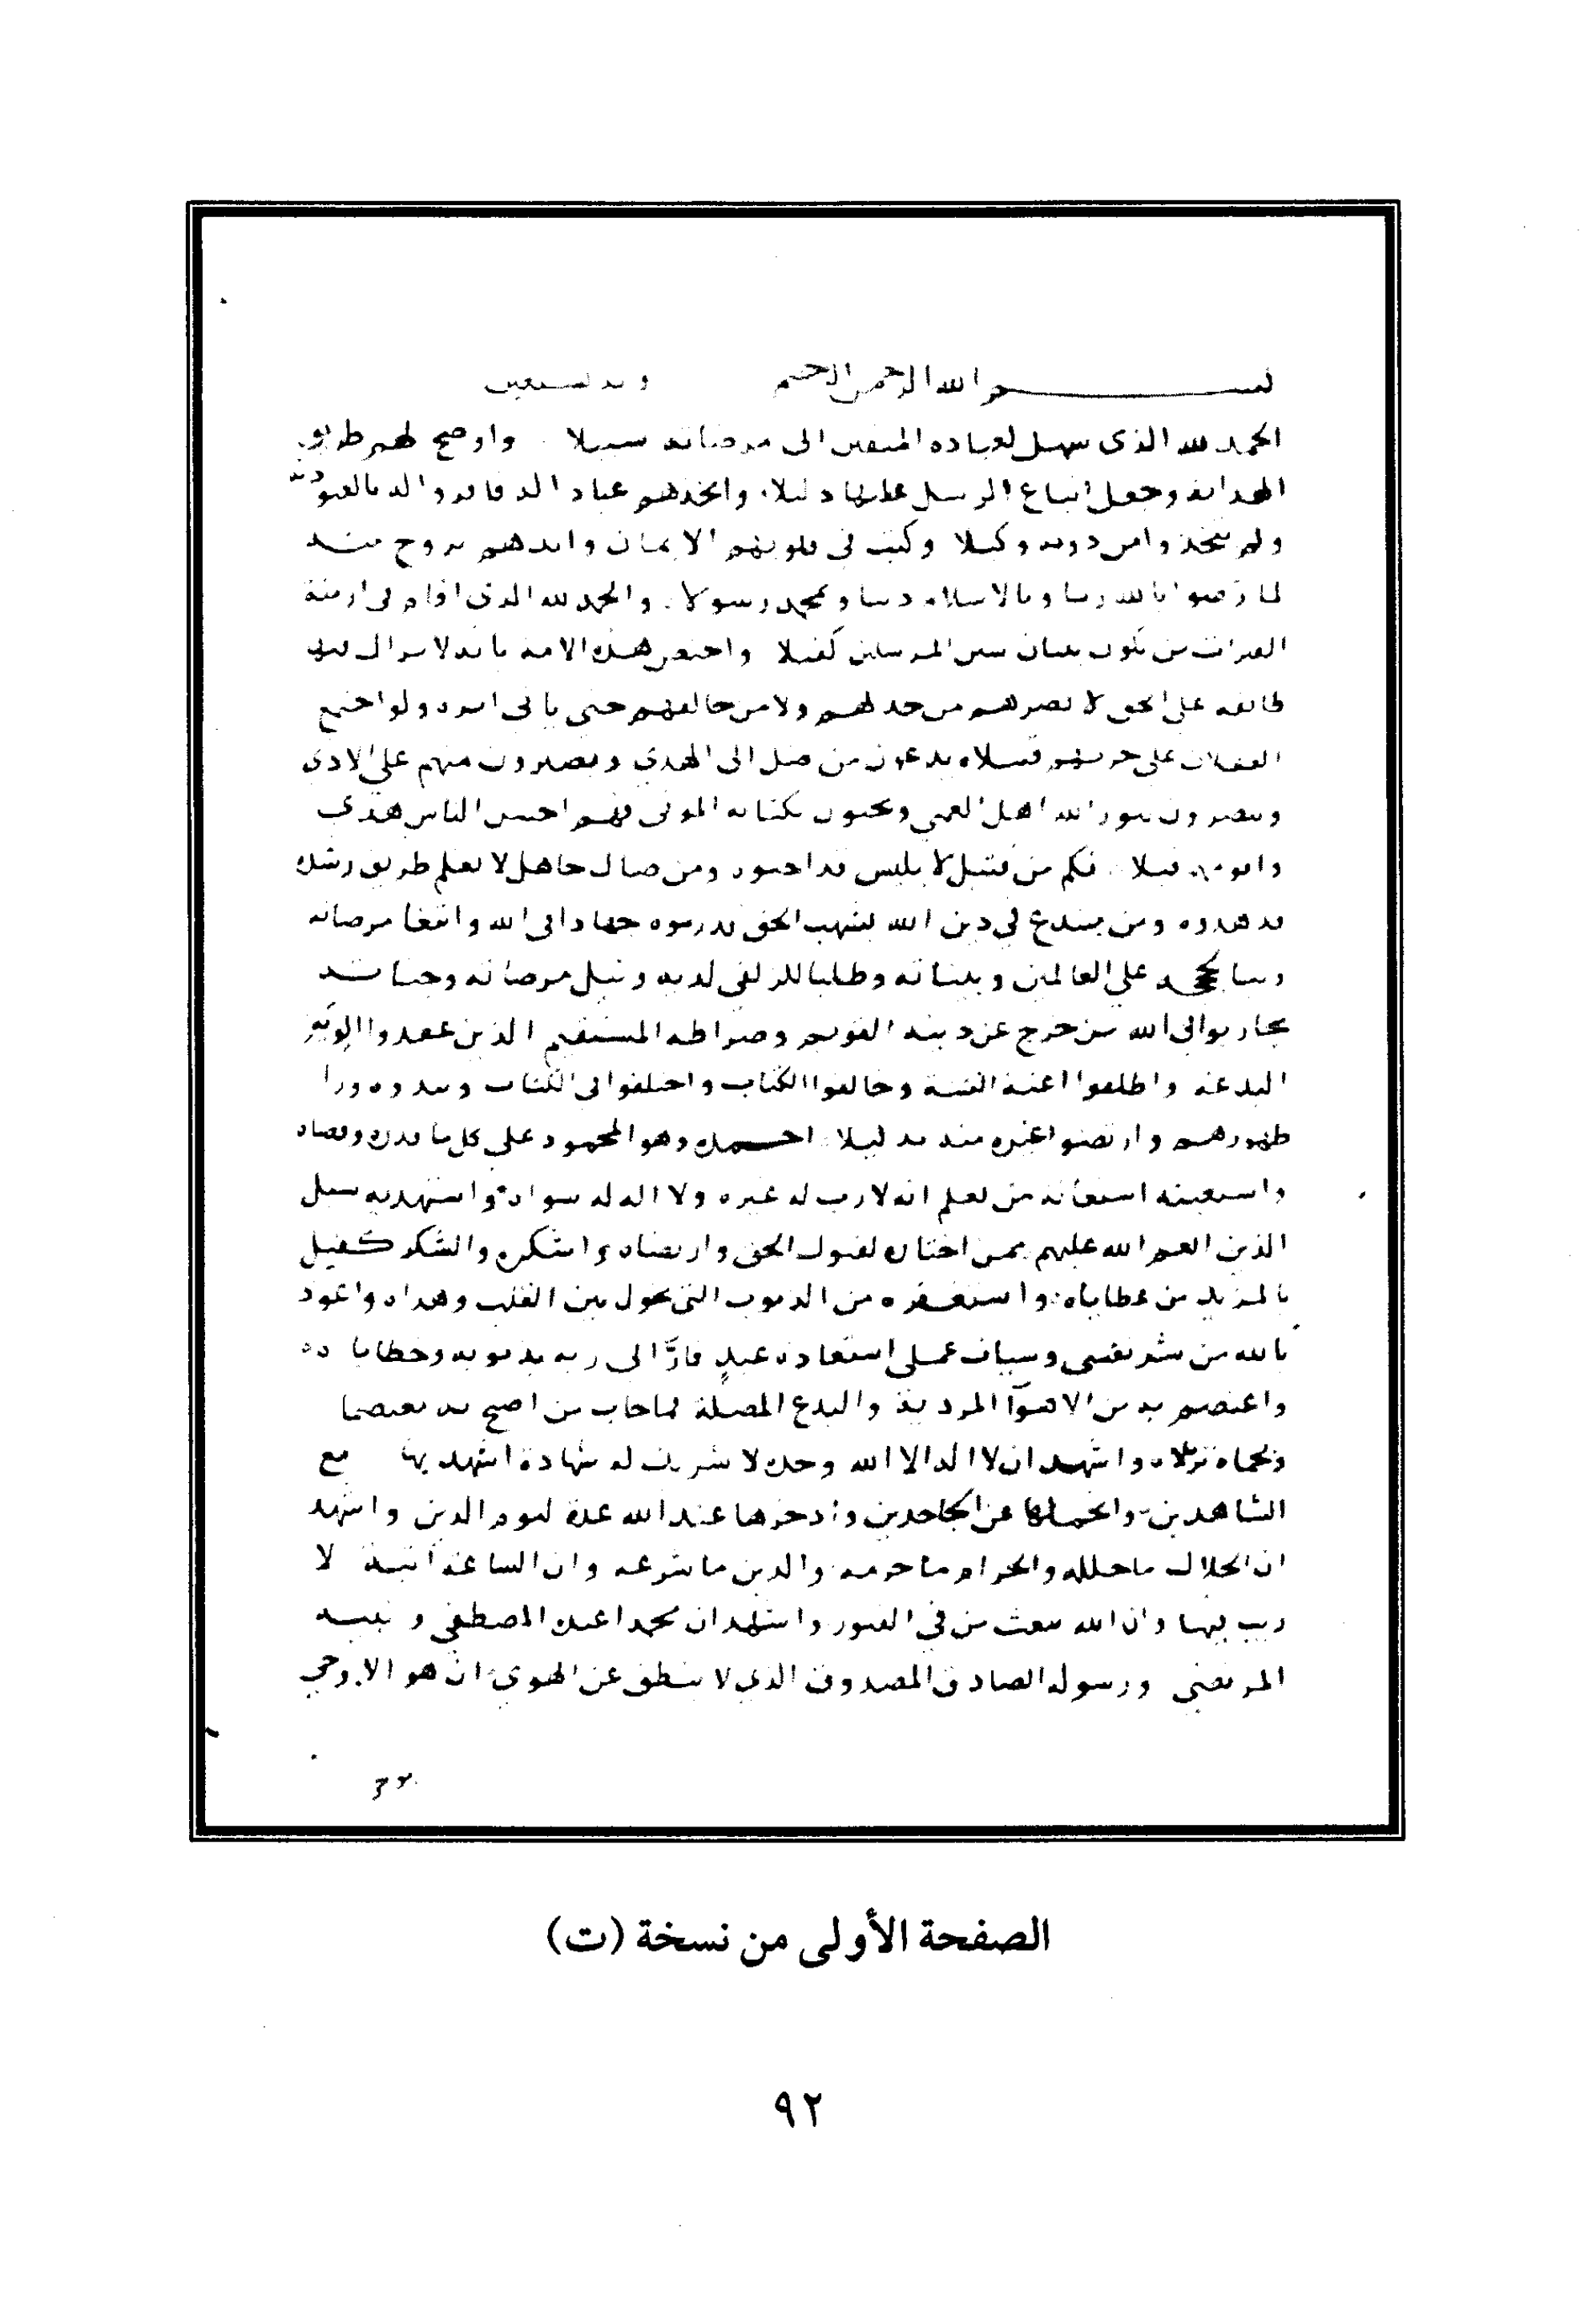 بسم الله الرحمن الرحيم وبه نستعين
الحمد لله الذى سهل لعباده المتقين الى مرضاته سبيلا واوضح لهم طريق
الهداية وجعل اتباع الرسل عليها دليلا واتخذهم عبادا له فاقروا له بالعبودية
ولم يتخذوا من دونه وكيلا وكتب في قلوبهم الايمان وايدهم بروح منه
لما رضوا بالله ربا وبالاسلام دينا وبمحمد رسولا والحمد لله الذي اقام في ازمنة
الفترات من يكون ببيان سنن المرسلين كفيلا واختص هذه الامة بانه لا يزال فيها
طائفة على الحق لا يضرهم من خذلهم ولا من خالفهم حتى ياتي امره ولو اجتمع
الثقلان على حربهم قبيلا يدعون من ضل الى الهدى ويصبرون منهم على الاذى
ويبصرون بنور الله اهل العمى ويحيون بكتابه الموتى فهم احسن الناس هديا
واقومهم قيلا فكم من قتيل لابليس قد احيوه ومن ضال جاهل لا يعلم طريق رشده
قد هدوه ومن مبتدع في دين الله بشهب الحق قد رموه جهادا في الله وابتغا مرضاته
وبيانا لحججه على العالمين وبيناته وطلبا للزلفى لديه ونيل مرضاته وجناته
فحاربوا في الله من خرج عن دينه القويم وصراطه المستقيم الذين عقدوا الوية
البدعة واطلقوا اعنة الفتنة وخالفوا الكتاب واختلفوا في الكتاب ونبذوه ورا
ظهورهم وارتضوا غيره منه بديلا احمده وهو المحمود على كل ما قدره وقضاه
واستعينه استعانة من يعلم انه لا رب له غيره ولا اله له سواه واستهديه سبيل
الذين انعم الله عليهم ممن اختاره لقبول الحق وارتضاه واشكره والشكر كفيل
بالمزيد من عطاياه واستغفره من الذنوب التي تحول بين القلب وهداه واعوذ
بالله من شر نفسي وسيات عملي استعاذة عبد فار الى ربه بذنوبه وخطاياه
واعتصم به من الاهوآ المردية والبدع المضلة فما خاب من اصبح به معتصما
وبحماه نزيلا واشهد ان لا اله الا الله وحده لا شريك له شهادة اشهد بها مع
الشاهدين واتحملها عن الجاحدين وادخرها عند الله عدة ليوم الدين واشهد
ان الحلال ما حلله والحرام ما حرمه والدين ما شرعه وان الساعة اتية لا
ريب فيها وان الله يبعث من في القبور واشهد ان محمدا عبده المصطفى ونبيه
المرتضى ورسوله الصادق المصدوق الذي لا ينطق عن الهوى ان هو الا وحي
الصفحة الأولى من نسخة (ت)
٩٢